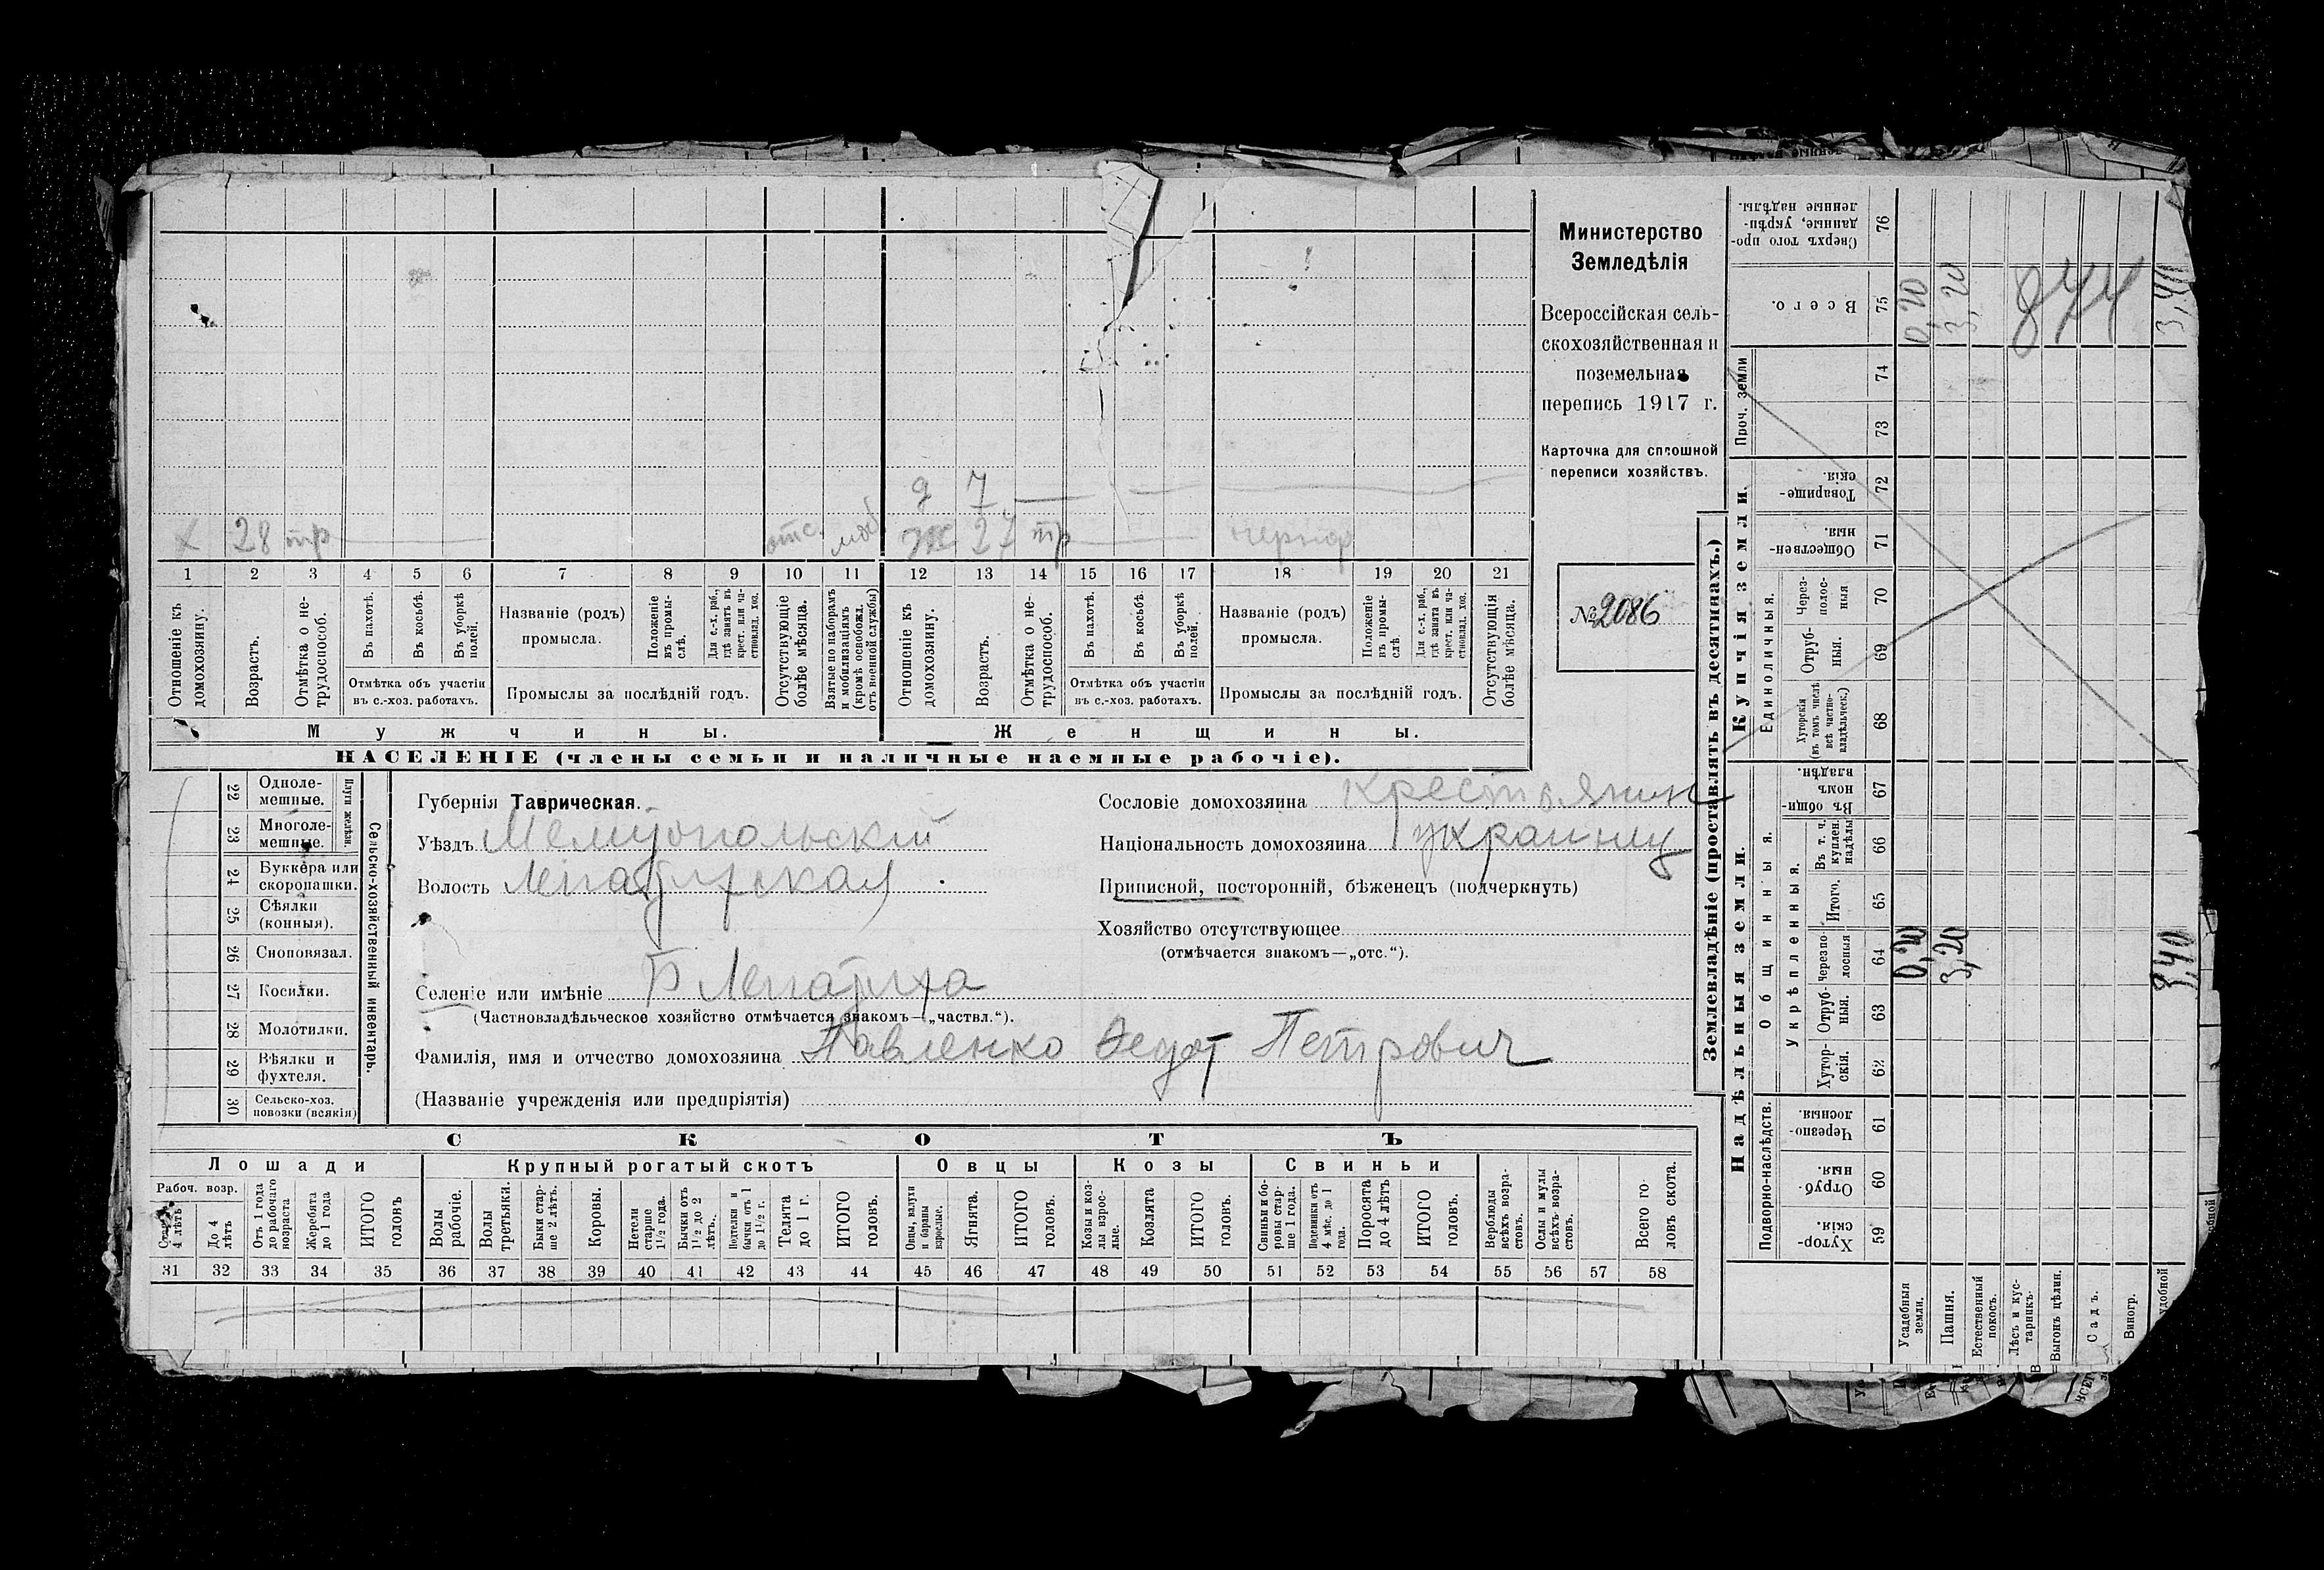 х 28 тр отс. моб
д 7
ж 27 тр чернор
1 2 3 4 5 6 7 8 9 10 11 12 13 14 15 16 17 18 19 20 21
Отношеніе къ домохозяину.
Возрастъ.
Отмѣтка о не-трудоспособ.
Въ пахотѣ.
Въ косьбѣ.
Въ уборкѣ полей.
Отмѣтка объ участіи
въ с.-хоз. работахъ.
Названіе (родъ)
промысла.
Положеніе въ промы-слѣ.
Для с.-х. раб., гдѣ занятъ въ крест. или ча-стновлад. хоз.
Промыслы за послѣдній годъ.
Отсутствующіе болѣе мѣсяца.
Взятые по наборамъ и мобилизаціямъ (кромѣ освобожд. отъ военной службы)
Отношеніе къ домохозяину.
Возрастъ.
Отмѣтка о не-трудоспособ.
Въ пахотѣ.
Въ косьбѣ.
Въ уборкѣ полей.
Отмѣтка объ участіи
въ с.-хоз. работахъ.
Названіе (родъ)
промысла.
Положеніе въ промы-слѣ.
Для с.-х. раб., гдѣ занята въ крест. или ча-стновлад. хоз.
Промыслы за послѣдній годъ.
Отсутствующія болѣе мѣсяца.
Мужчины.
Женщины.
НАСЕЛЕНІЕ (члены семьи и наличные наемные рабочіе).
Министерство
Земледѣлія
Всероссійская сель-
скохозяйственная и
поземельная
перепись 1917 г.
Карточка для сплошной
переписи хозяйствъ.
№ 2086
22 Одноле-мешные.
23 Многоле-мешные.
Плуги желѣзн.
24 Буккера или скоропашки.
25 Сѣялки (конныя).
26 Сноповязал.
27 Косилки.
28 Молотилки.
29 Вѣялки и фухтеля.
30 Сельско-хоз. повозки (всякія)
Сельско-хозяйственный инвентарь.
Губернія Таврическая.
Уѣздъ Мелитопольскій
Волость Лепатихская
Селеніе или имѣніе Б Лепатиха
(Частновладѣльческое хозяйство отмѣчается знакомъ—„частвл.“).
Фамилія, имя и отчество домохозяина Павленко Федот Петрович
(Названіе учрежденія или предпріятія)
Сословіе домохозяина крестьянин
Національность домохозяина украинец
Приписной, посторонній, бѣженецъ (подчеркнуть)
Хозяйство отсутствующее
(отмѣчается знакомъ—„отс.“).
СКОТЪ
Лошади
Крупный рогатый скотъ
Овцы
Козы
Свиньи
Рабоч. возр.
4 лѣтъ
До 4 лѣтъ
Отъ 1 года до рабочаго возраста
Жеребята до 1 года
ИТОГО головъ
Волы рабочіе.
Волы третьяки.
Быки стар-ше 2 лѣтъ.
Коровы.
Нетели старше 1½ года.
Бычки отъ 1½ до 2 лѣтъ.
Подтелки и бычки отъ 1 до 1½ г.
Телята до 1 г.
ИТОГО головъ.
Овцы, валухи и бараны взрослые.
Ягнята.
ИТОГО головъ.
Козы и коз-лы взрос-лые.
Козлята
ИТОГО головъ.
Свиньи и бо-ровы стар-ше 1 года.
Подсвинки отъ 4 мѣс. до 1 года.
Поросята до 4 лѣтъ
ИТОГО головъ.
Верблюды всѣхъ возра-стовъ.
Ослы и мулы всѣхъ возра-стовъ.
Всего го-ловъ скота.
31 32 33 34 35 36 37 38 39 40 41 42 43 44 45 46 47 48 49 50 51 52 53 54 55 56 57 58
Землевладѣніе (проставлять въ десятинахъ.)
Надѣльныя земли.
Купчія земли.
Проч. земли
Подворно-наслѣдств.
Общинныя.
Укрѣпленныя.
Единоличныя.
Хутор-скія. 59
Отруб-ныя. 60
Черезпо-лосныя. 61
Хутор-скія. 62
Отруб-ныя. 63
Черезпо-лосныя 64
Итого. 65
Въ т. ч. куплен. надѣлы 66
Въ общи-номъ владѣн. 67
Хуторскія (въ томъ числѣ всѣ частно-владѣльческ.) 68
Отруб-ныя. 69
Через-полос-ныя 70
Обществен-ныя. 71
Товарище-скія. 72
73
74
Всего. 75
Сверхъ того про-данные, укрѣп-ленные надѣлы. 76
Усадебныя земли. 0,20 0,20
Пашня. 3,20 3,20
Естественный покосъ.
Лѣсъ и кус-тарникъ.
Выгонъ цѣлин.
Садъ.
Виногр.
удобной 3,40 3,40
844